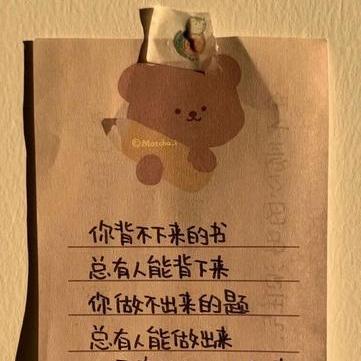 ©Matcha.i
你背不下来的书
总有人能背下来
你做不出来的题
总有人能做出来